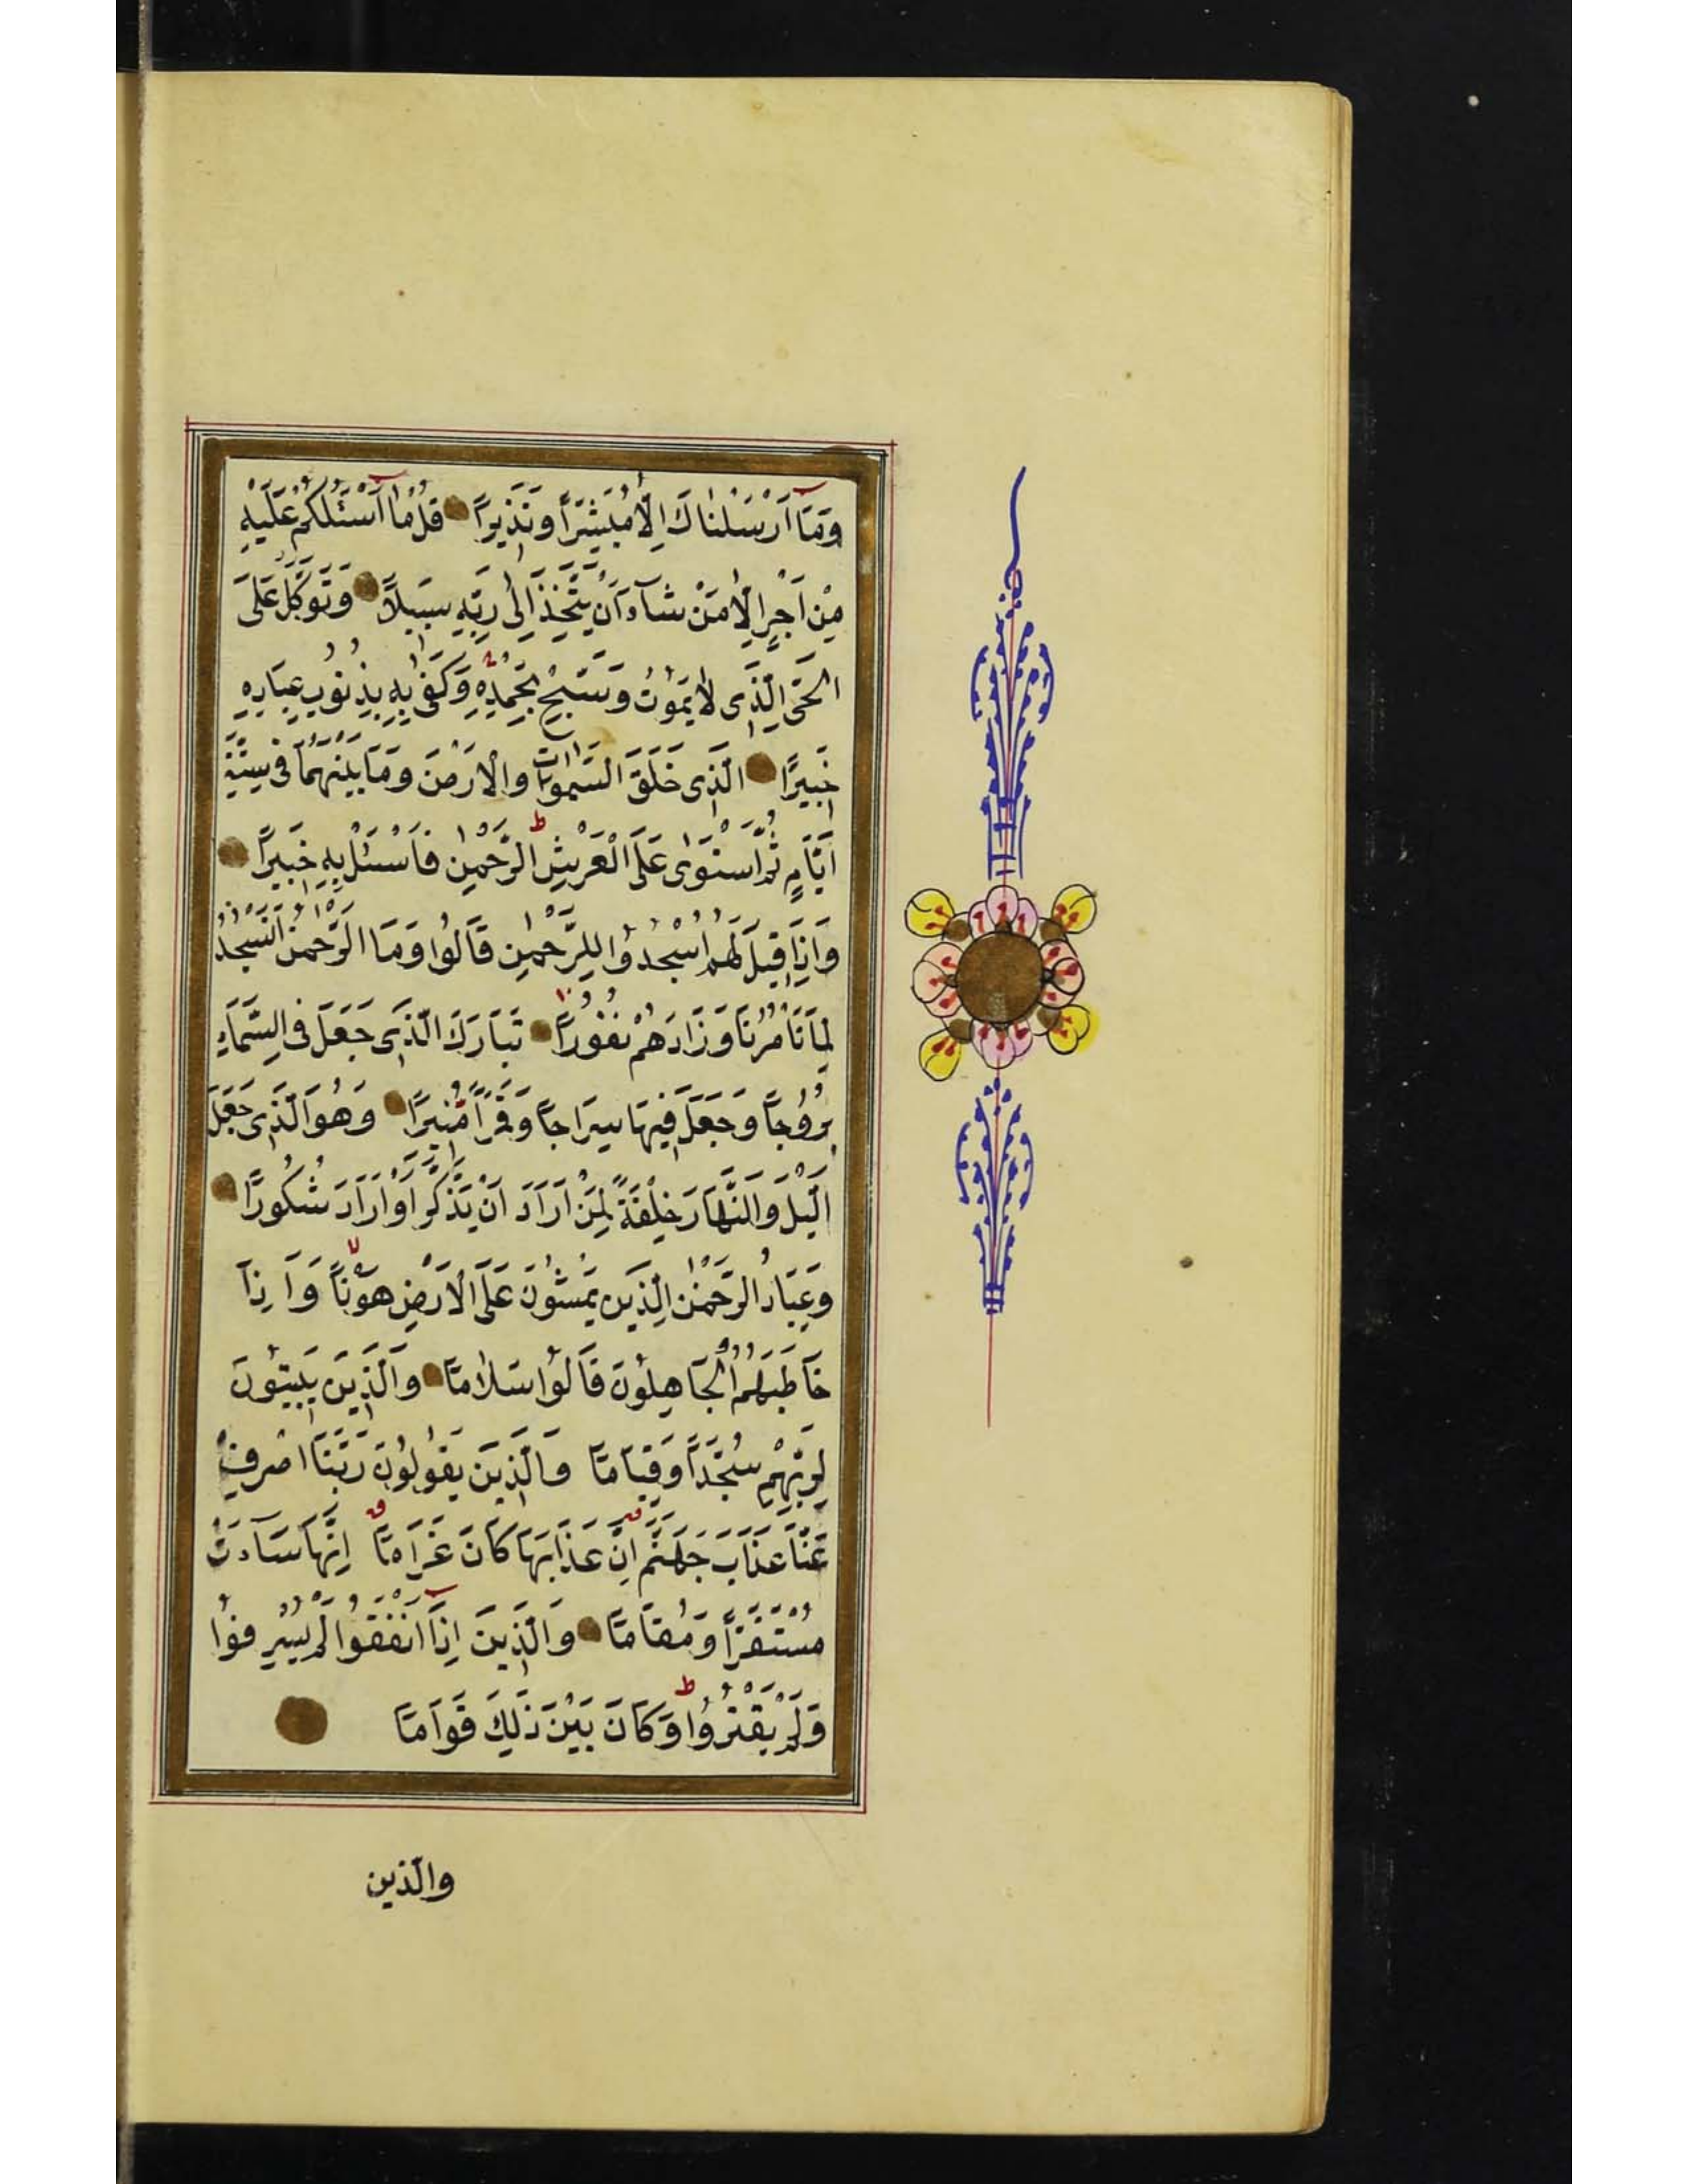 وَمَآ اَرْسَلْنَاكَ اِلَّا مُبَشِّرًا وَنَذِيرًا قُلْ مَآ اَسْئَلُكُمْ عَلَيْهِ
مِنْ اَجْرٍ اِلَّا مَنْ شَآءَ اَنْ يَتَّخِذَ اِلٰى رَبِّهِ سَبِيلًا وَتَوَكَّلْ عَلَى
الْحَىِّ الَّذِى لَا يَمُوتُ وَسَبِّحْ بِحَمْدِهِ وَكَفٰى بِهِ بِذُنُوبِ عِبَادِهِ
خَبِيرًا الَّذِى خَلَقَ السَّمٰوَاتِ وَالْاَرْضَ وَمَا بَيْنَهُمَا فِى سِتَّةِ
اَيَّامٍ ثُمَّ اسْتَوٰى عَلَى الْعَرْشِ ط الرَّحْمٰنُ فَاسْئَلْ بِهِ خَبِيرًا
وَاِذَا قِيلَ لَهُمُ اسْجُدُوا لِلرَّحْمٰنِ قَالُوا وَمَا الرَّحْمٰنُ اَنَسْجُدُ
لِمَا تَأْمُرُنَا وَزَادَهُمْ نُفُورًا تَبَارَكَ الَّذِى جَعَلَ فِى السَّمَآءِ
بُرُوجًا وَجَعَلَ فِيهَا سِرَاجًا وَقَمَرًا مُنِيرًا وَهُوَ الَّذِى جَعَلَ
الَّيْلَ وَالنَّهَارَ خِلْفَةً لِمَنْ اَرَادَ اَنْ يَذَّكَّرَ اَوْ اَرَادَ شُكُورًا
وَعِبَادُ الرَّحْمٰنِ الَّذِينَ يَمْشُونَ عَلَى الْاَرْضِ هَوْنًا وَاِذَا
خَاطَبَهُمُ الْجَاهِلُونَ قَالُوا سَلَامًا وَالَّذِينَ يَبِيتُونَ
لِرَبِّهِمْ سُجَّدًا وَقِيَامًا وَالَّذِينَ يَقُولُونَ رَبَّنَا اصْرِفْ
عَنَّا عَذَابَ جَهَنَّمَ اِنَّ عَذَابَهَا كَانَ غَرَامًا اِنَّهَا سَآءَتْ
مُسْتَقَرًّا وَمُقَامًا وَالَّذِينَ اِذَآ اَنْفَقُوا لَمْ يُسْرِفُوا
وَلَمْ يَقْتُرُوا ط وَكَانَ بَيْنَ ذٰلِكَ قَوَامًا
والّذين